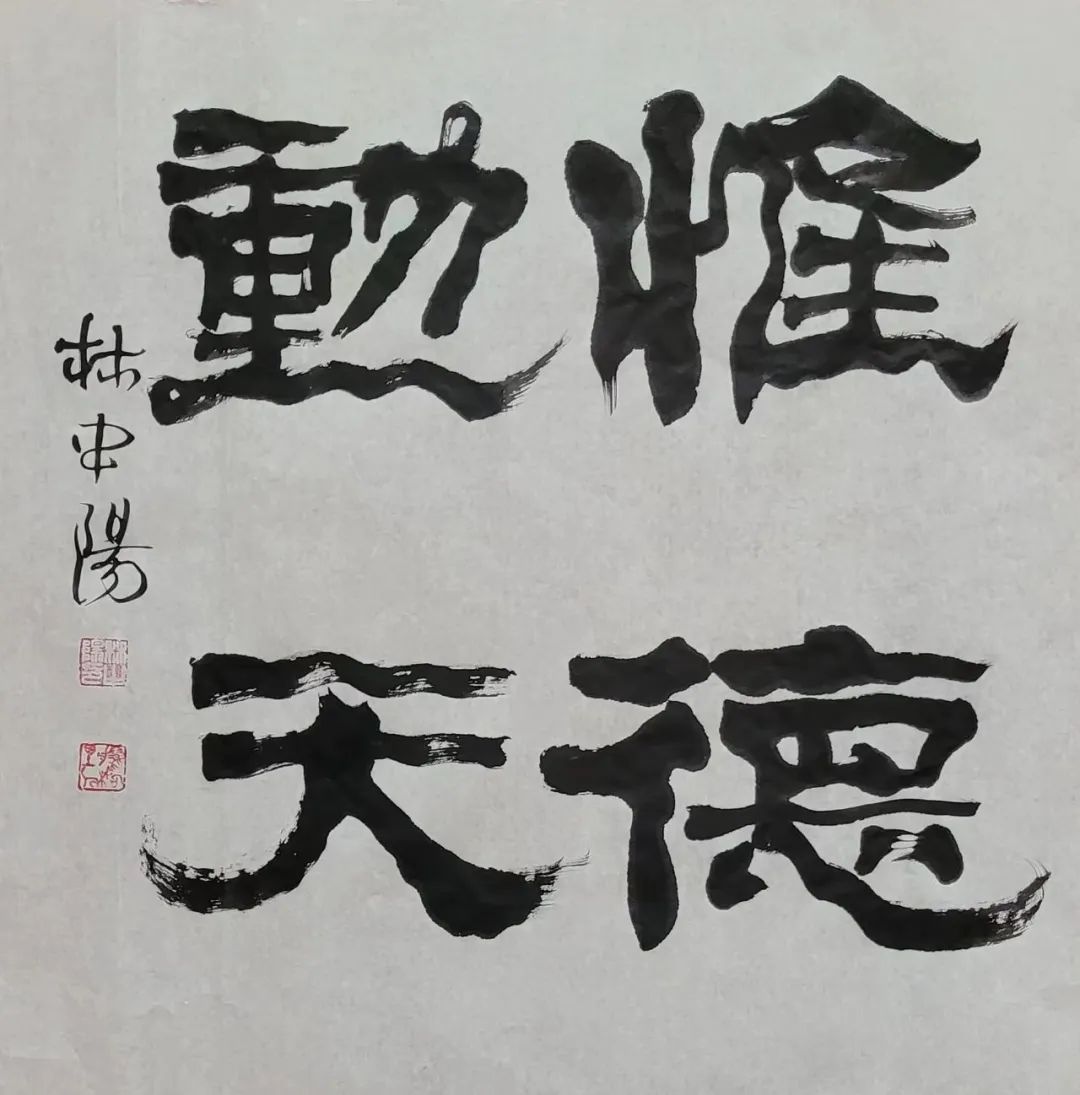 惟德
動天
林中陽